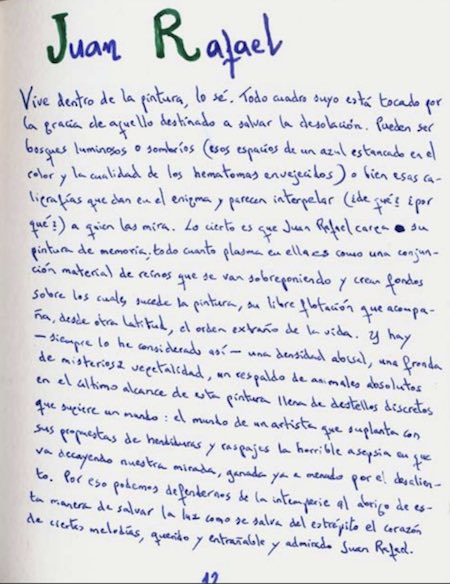 Juan Rafael
Vive dentro de la pintura, lo sé. Todo cuadro suyo está tocado por
la gracia de aquello destinado a salvar la desolación. Pueden ser
bosques luminosos o sombríos (esos espacios de un azul estancado en el
color y la cualidad de los hematomas envejecidos) o bien esas ca-
ligrafías que dan en el enigma y parecen interpelar (¿de qué? ¿por
qué?) a quien las mira. Lo cierto es que Juan Rafael carga su
pintura de memoria, todo cuanto plasma en ella es como una conjun-
ción material de reinos que se van sobreponiendo y crean fondos
sobre los cuales sucede la pintura, su libre flotación que acompa-
ña, desde otra latitud, el orden extraño de la vida. Y hay
— siempre lo he considerado así — una densidad abisal, una fronda
de misteriosa vegetalidad, un respaldo de animales absolutos
en el último alcance de esta pintura llena de destellos discretos
que sugiere un mundo: el mundo de un artista que suplanta con
sus propuestas de hendiduras y raspajes la horrible asepsia en que
va decayendo nuestra mirada, ganada ya a menudo por el desalien-
to. Por eso podemos defendernos de la intemperie al abrigo de es-
ta manera de salvar la luz como se salva del estrépito el corazón
de ciertas melodías, querido y entrañable y admirado Juan Rafael.
12